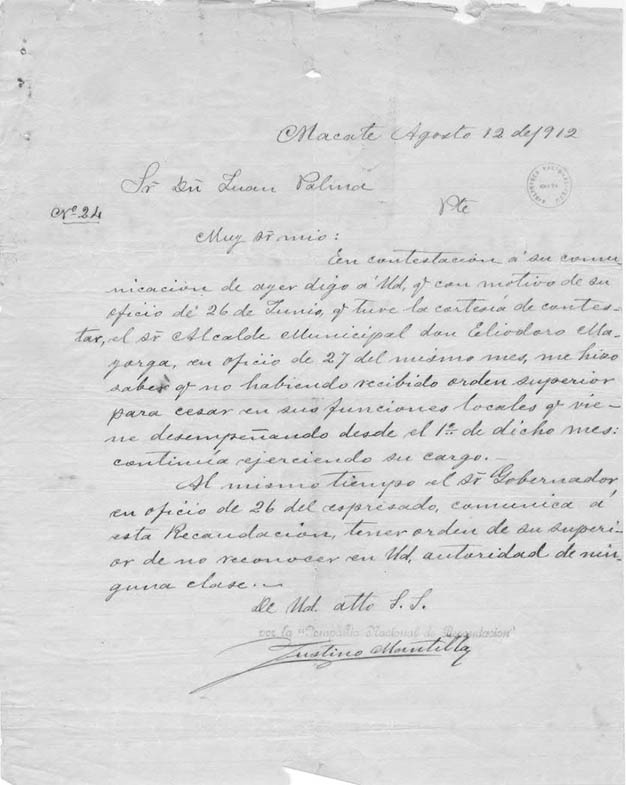 Macate Agosto 12 de 1912
Sr. Dn. Juan Palma
Nº 24
Pte
Muy Sr. mio:
En contestacion á su comu-
nicación de ayer digo á Ud, q con motivo de su
oficio de 26 de Junio, q tuve la cortesiá de contes-
tar, el Sr Alcalde Municipal don Eliodoro Ma-
yorga, en oficio de 27 del mismo mes, me hizo
saber q no habiendo recibido orden superior
para cesar en sus funciones locales q vie-
ne desempeñando desde el 1º de dicho mes:
continúa ejerciendo su cargo.-
Al mismo tiempo el Sr Gobernador
en oficio de 26 del espresado, comunica á
esta Recaudación, tener orden de su superi-
or de no reconocer en Ud, autoridad de nin-
guna clase.-
De Ud. atto S. S.
por la "Compañia Nacional de Recaudacion"
Justino Mantilla